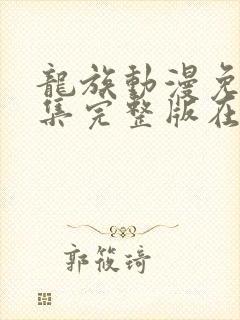 龍族動漫免
集完整版在
郭筱琦